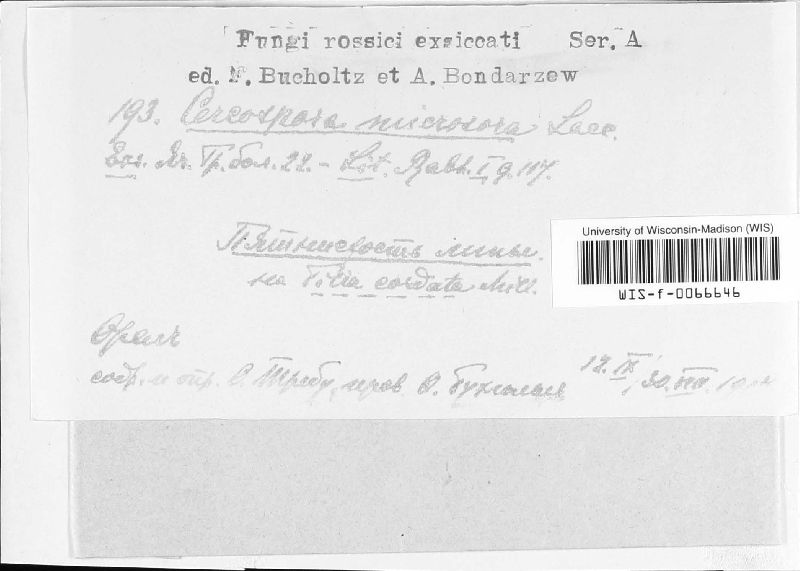 Fungi rossici exsiccati Ser. A
ed. F. Bucholtz et A. Bondarzew
193. Cercospora microsora Sacc.
Гр. бол. 22. – Lit. Rabh. I 9. 117.
Пятнистость липы.
на Tilia cordata Mill.
University of Wisconsin-Madison (WIS)
WIS-f-0066646
Орелъ
собр. и опр. О. Требу, пров. Ѳ. Бухгольц 12. IX